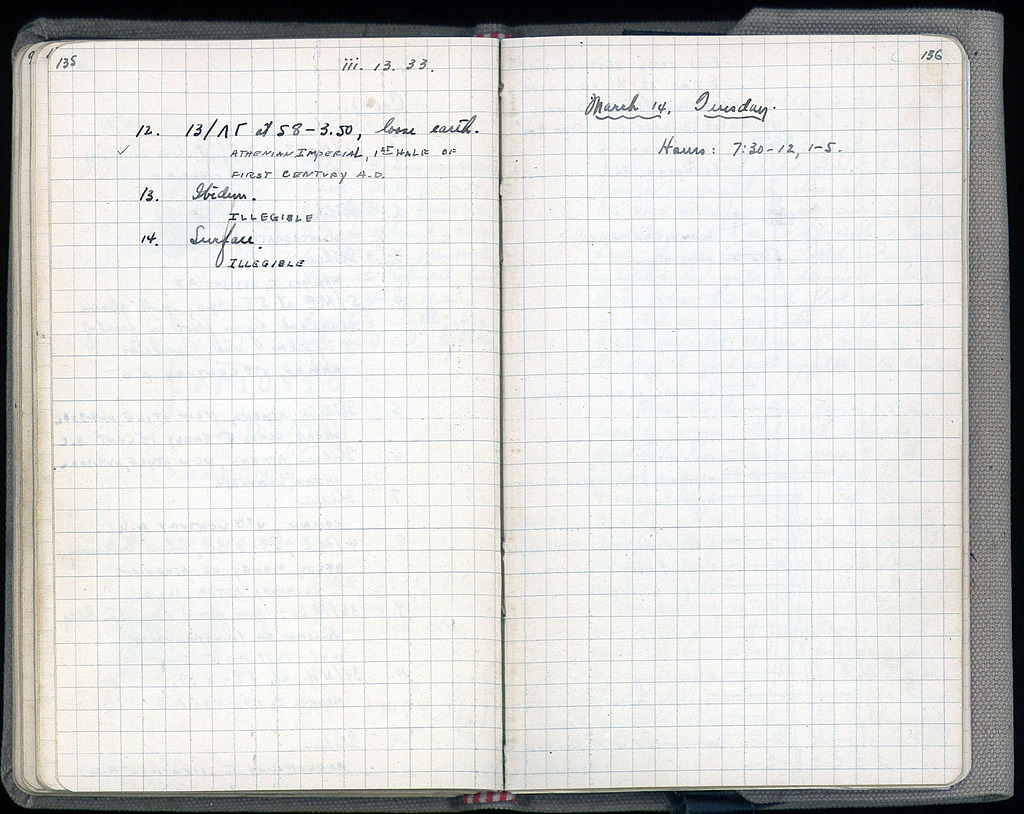 135
iii. 13. 33.
12. 13/ΛΓ at 58-3.50, loose earth.
✓ ATHENIAN IMPERIAL, 1ST HALF OF
FIRST CENTURY A.D.
13. Ibidem.
ILLEGIBLE
14. Surface.
ILLEGIBLE
136
March 14, Tuesday.
Hours: 7:30-12, 1-5.